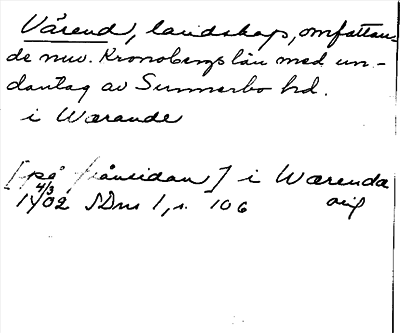 Värend, landskap, omfattan-
de nuv. Kronobergs län med un-
dantag av Sunnerbo hd.
i Wærande
[på frånsidan] i Wærenda
4/3 1402 SDns 1, s. 106 orig